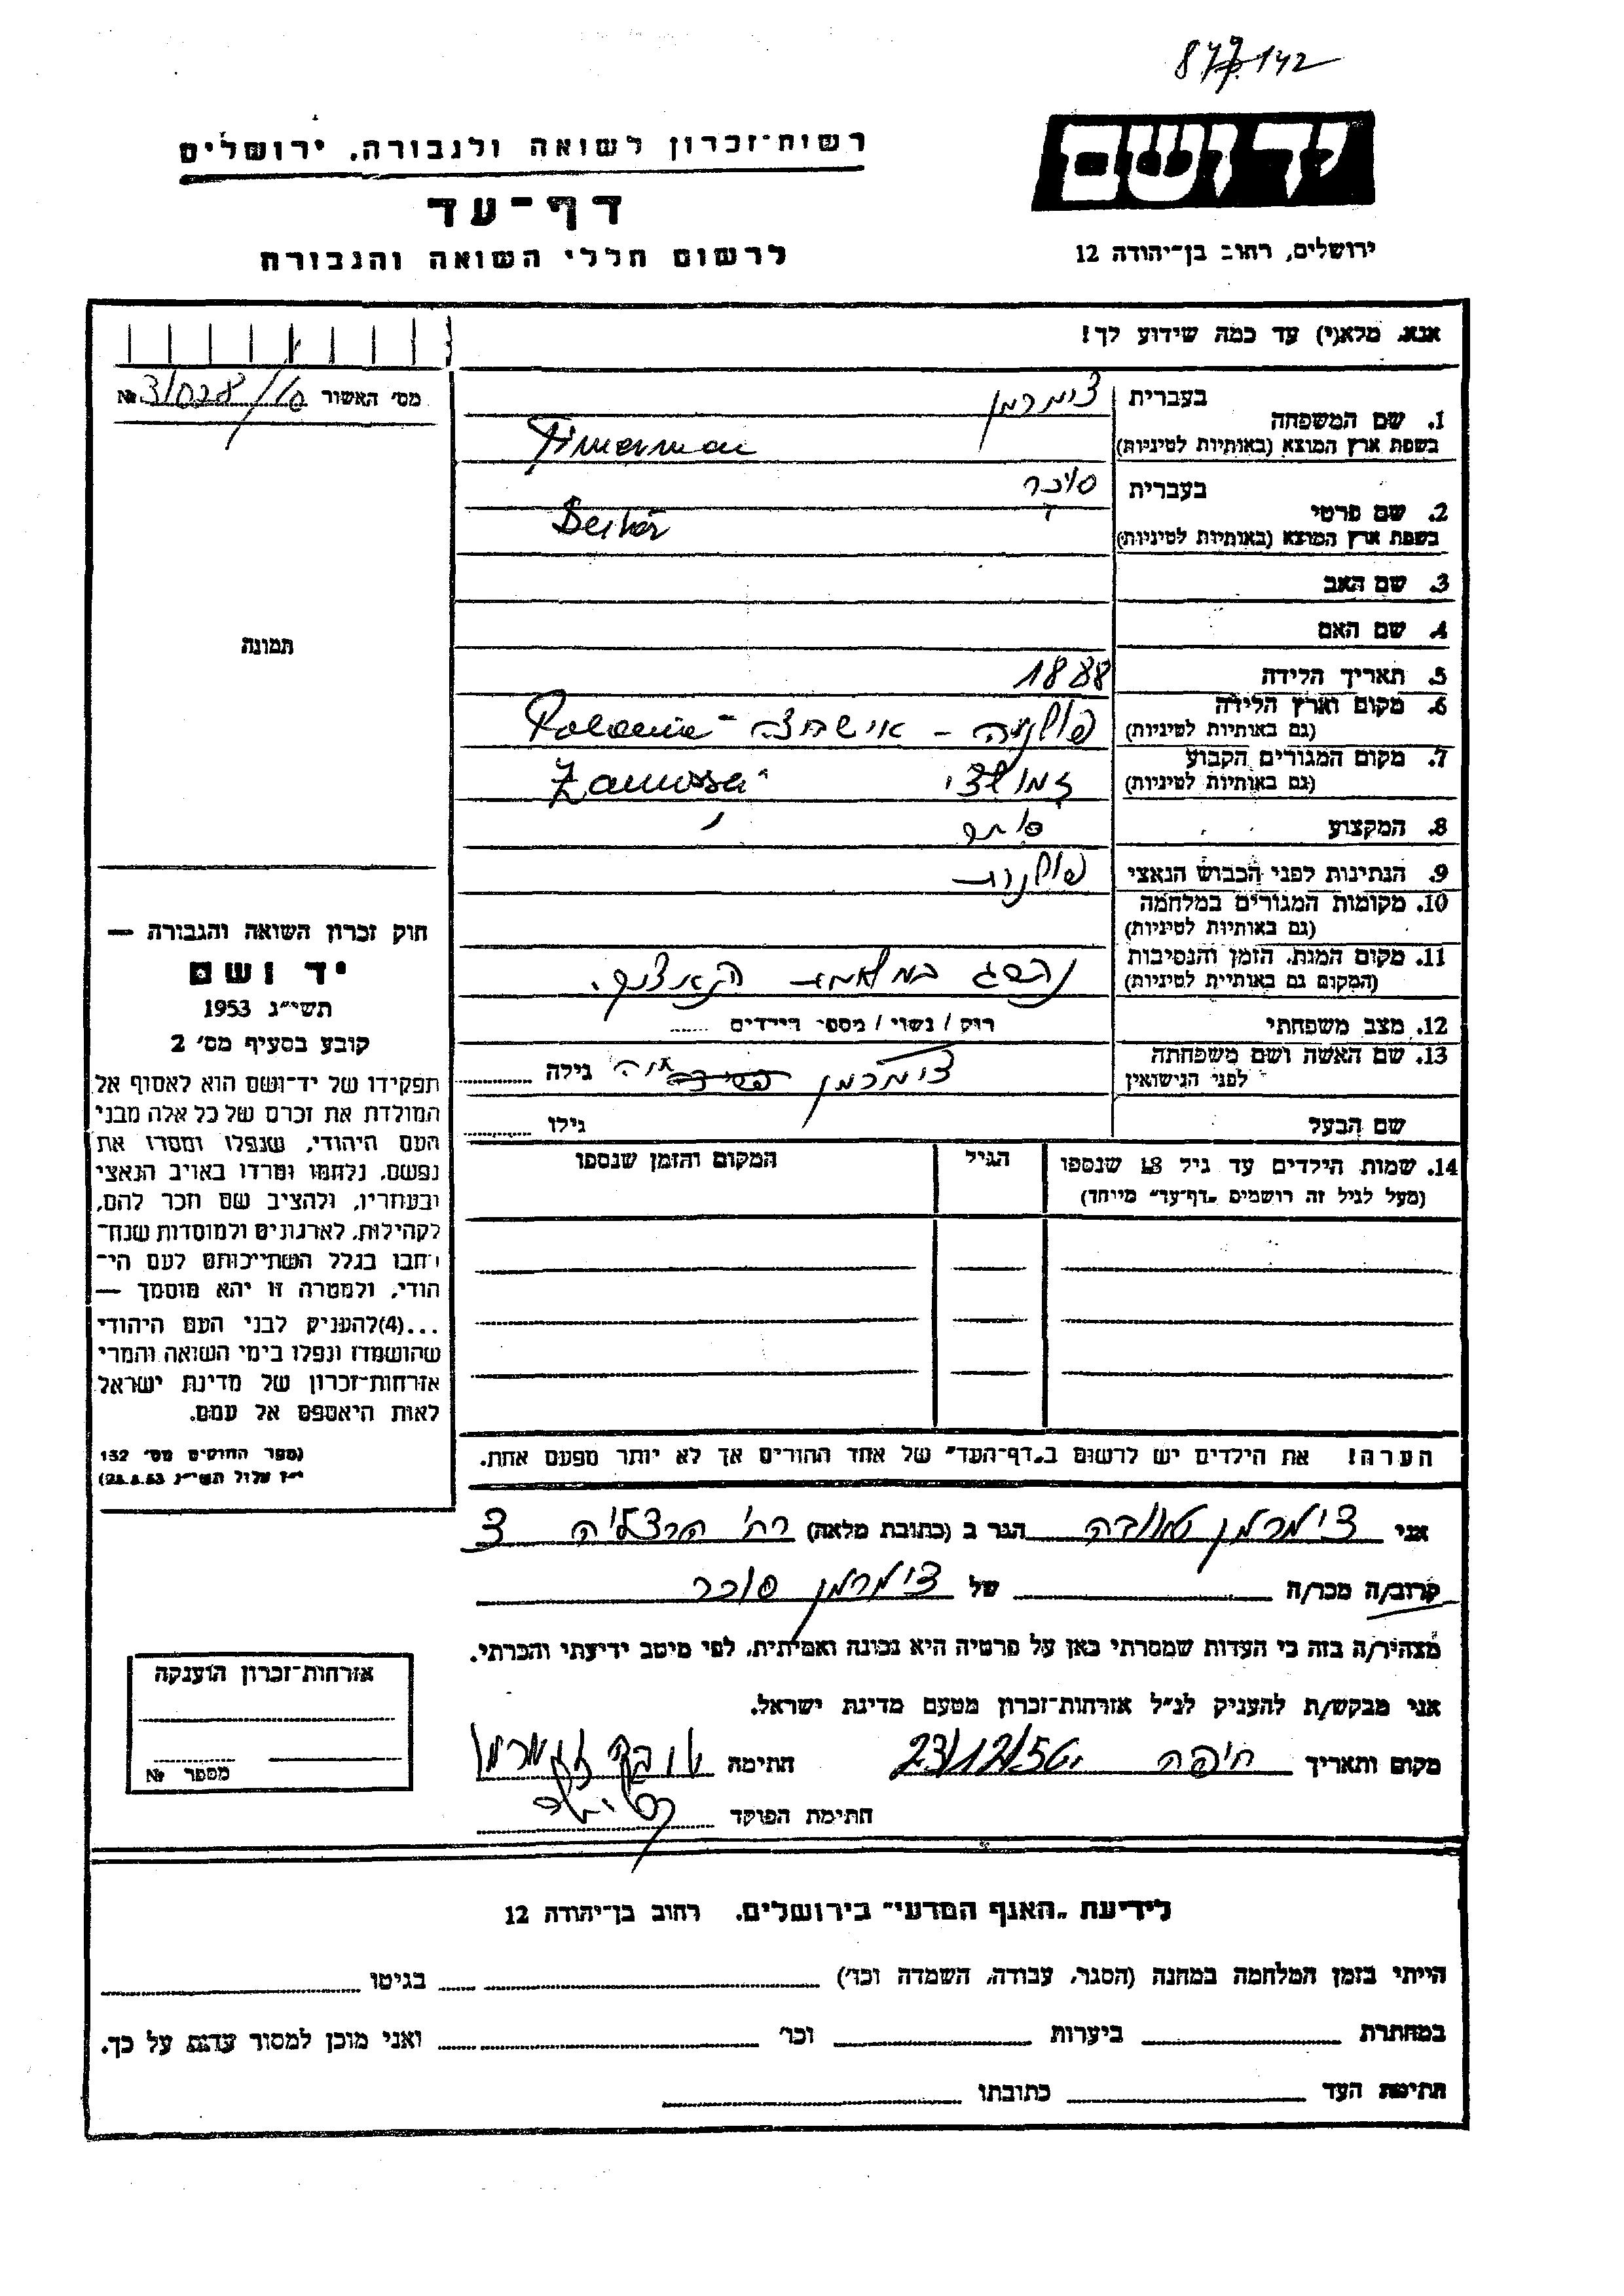 142
יד ושם
רשות־זכרון לשואה ולגבורה, ירושלים
דף־עד
לרשום חללי השואה והגבורה
ירושלים, רחוב בן־יהודה 12
אנא, מלא(י) עד כמה שידוע לך!
מס׳ האשור №
1. שם המשפחה
בעברית צימרמן
בשפת ארץ המוצא (באותיות לטיניות) Zimerman
2. שם פרטי
בעברית סוכר
בשפת ארץ המוצא (באותיות לטיניות)
3. שם האב
4. שם האם
5. תאריך הלידה 1888
6. מקום וארץ הלידה
(גם באותיות לטיניות) פולניה -
7. מקום המגורים הקבוע
(גם באותיות לטיניות)
8. המקצוע סוחר
9. הנתינות לפני הכבוש הנאצי פולנית
10. מקומות המגורים במלחמה
(גם באותיות לטיניות)
11. מקום המות, הזמן והנסיבות
(המקום גם באותיות לטיניות) נהרג במלחמת הנאצים.
12. מצב משפחתי רווק / נשוי / מספר הילדים
13. שם האשה ושם משפחתה
לפני הנישואין צימרמן גילה
שם הבעל גילו
14. שמות הילדים עד גיל 18 שנספו
(מעל לגיל זה רושמים „דף־עד״ מיוחד)
הגיל
המקום והזמן שנספו
הערה! את הילדים יש לרשום ב„דף־העד״ של אחד ההורים אך לא יותר מפעם אחת.
תמונה
חוק זכרון השואה והגבורה —
יד ושם
תשי״ג 1953
קובע בסעיף מס׳ 2
תפקידו של יד־ושם הוא לאסוף אל
המולדת את זכרם של כל אלה מבני
העם היהודי, שנפלו ומסרו את
נפשם, נלחמו ומרדו באויב הנאצי
ובעוזריו, ולהציב שם וזכר להם,
לקהילות, לארגונים ולמוסדות שנח־
רבו בגלל השתייכותם לעם הי־
הודי, ולמטרה זו יהא מוסמך —
...(4)להעניק לבני העם היהודי
שהושמדו ונפלו בימי השואה והמרי
אזרחות־זכרון של מדינת ישראל
לאות היאספם אל עמם.
(ספר החוקים מס׳ 132
י״ז אלול תשי״ג 28.8.53)
אני צימרמן טובה הגר ב (כתובת מלאה) רח׳ הרצליה 3
קרוב/ה מכר/ה של צימרמן סוכר
מצהיר/ה בזה כי העדות שמסרתי כאן על פרטיה היא נכונה ואמיתית, לפי מיטב ידיעתי והכרתי.
אני מבקש/ת להעניק לנ״ל אזרחות־זכרון מטעם מדינת ישראל.
מקום ותאריך חיפה 23/12/56 חתימה טובה צימרמן
חתימת הפוקד
אזרחות־זכרון הוענקה
מספר №
לידיעת „האגף המדעי״ בירושלים, רחוב בן־יהודה 12
הייתי בזמן המלחמה במחנה (הסגר, עבודה, השמדה וכו׳) בגיטו
במחתרת ביערות וכו׳ ואני מוכן למסור עדות על כך.
חתימת העד כתובתו